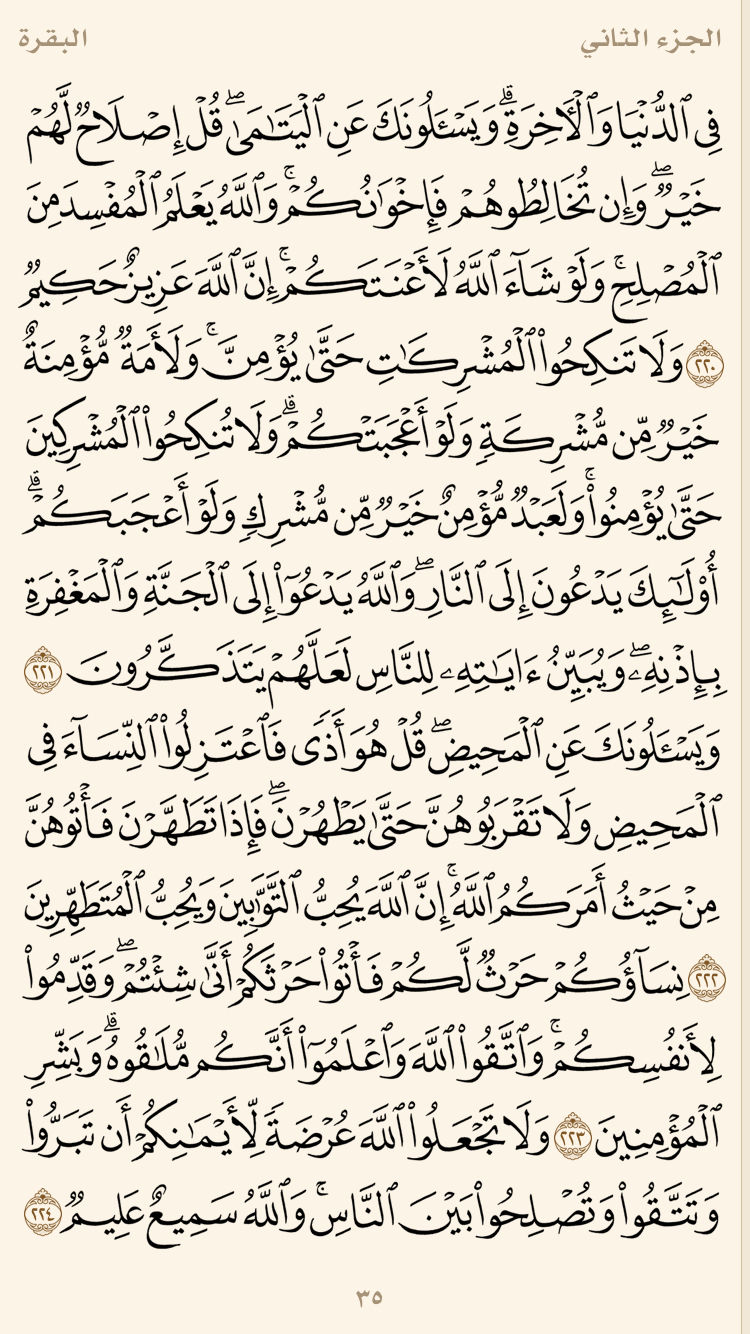 الجزء الثاني البقرة
فِى ٱلدُّنْيَا وَٱلْـَٔاخِرَةِ ۗ وَيَسْـَٔلُونَكَ عَنِ ٱلْيَتَـٰمَىٰ ۖ قُلْ إِصْلَاحٌ لَّهُمْ
خَيْرٌ ۖ وَإِن تُخَالِطُوهُمْ فَإِخْوَٰنُكُمْ ۚ وَٱللَّهُ يَعْلَمُ ٱلْمُفْسِدَ مِنَ
ٱلْمُصْلِحِ ۚ وَلَوْ شَآءَ ٱللَّهُ لَأَعْنَتَكُمْ ۚ إِنَّ ٱللَّهَ عَزِيزٌ حَكِيمٌ
٢٢٠ وَلَا تَنكِحُوا۟ ٱلْمُشْرِكَـٰتِ حَتَّىٰ يُؤْمِنَّ ۚ وَلَأَمَةٌ مُّؤْمِنَةٌ
خَيْرٌ مِّن مُّشْرِكَةٍ وَلَوْ أَعْجَبَتْكُمْ ۗ وَلَا تُنكِحُوا۟ ٱلْمُشْرِكِينَ
حَتَّىٰ يُؤْمِنُوا۟ ۚ وَلَعَبْدٌ مُّؤْمِنٌ خَيْرٌ مِّن مُّشْرِكٍ وَلَوْ أَعْجَبَكُمْ ۗ
أُو۟لَـٰٓئِكَ يَدْعُونَ إِلَى ٱلنَّارِ ۖ وَٱللَّهُ يَدْعُوٓا۟ إِلَى ٱلْجَنَّةِ وَٱلْمَغْفِرَةِ
بِإِذْنِهِۦ ۖ وَيُبَيِّنُ ءَايَـٰتِهِۦ لِلنَّاسِ لَعَلَّهُمْ يَتَذَكَّرُونَ ٢٢١
وَيَسْـَٔلُونَكَ عَنِ ٱلْمَحِيضِ ۖ قُلْ هُوَ أَذًى فَٱعْتَزِلُوا۟ ٱلنِّسَآءَ فِى
ٱلْمَحِيضِ وَلَا تَقْرَبُوهُنَّ حَتَّىٰ يَطْهُرْنَ ۖ فَإِذَا تَطَهَّرْنَ فَأْتُوهُنَّ
مِنْ حَيْثُ أَمَرَكُمُ ٱللَّهُ ۚ إِنَّ ٱللَّهَ يُحِبُّ ٱلتَّوَّٰبِينَ وَيُحِبُّ ٱلْمُتَطَهِّرِينَ
٢٢٢ نِسَآؤُكُمْ حَرْثٌ لَّكُمْ فَأْتُوا۟ حَرْثَكُمْ أَنَّىٰ شِئْتُمْ ۖ وَقَدِّمُوا۟
لِأَنفُسِكُمْ ۚ وَٱتَّقُوا۟ ٱللَّهَ وَٱعْلَمُوٓا۟ أَنَّكُم مُّلَـٰقُوهُ ۗ وَبَشِّرِ
ٱلْمُؤْمِنِينَ ٢٢٣ وَلَا تَجْعَلُوا۟ ٱللَّهَ عُرْضَةً لِّأَيْمَـٰنِكُمْ أَن تَبَرُّوا۟
وَتَتَّقُوا۟ وَتُصْلِحُوا۟ بَيْنَ ٱلنَّاسِ ۚ وَٱللَّهُ سَمِيعٌ عَلِيمٌ ٢٢٤
٣٥